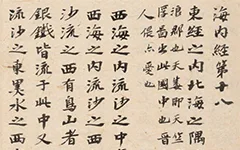 海内經第十八
東經之内北海之隅
浪郡也天毒即天竺
屠出此國中也
人偎愛也
西海之内流沙之中
西海之内流沙之西
流沙之西有鳥山者
銀鐵皆流于此中又
流沙之東黑水之西